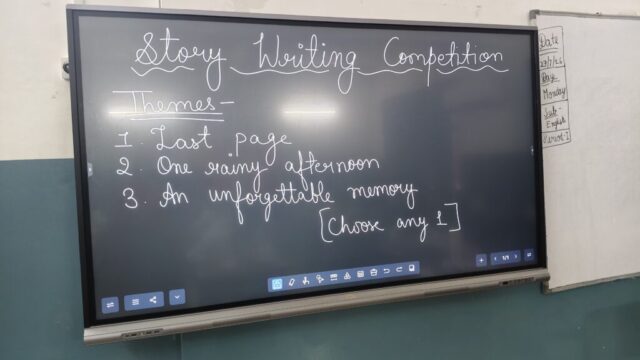 Story Writing Competition
Themes -
1. Last page
2. One rainy afternoon
3. An unforgettable memory
[Choose any 1]
1/1
Date
Day
Monday
English